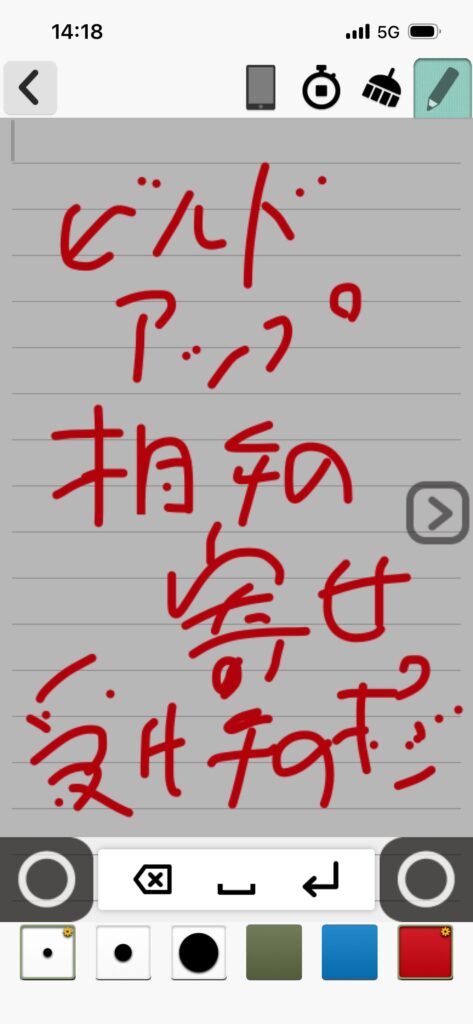 14:18 5G
ビルド
アップ
相手の
寄せ
受け手のポジ